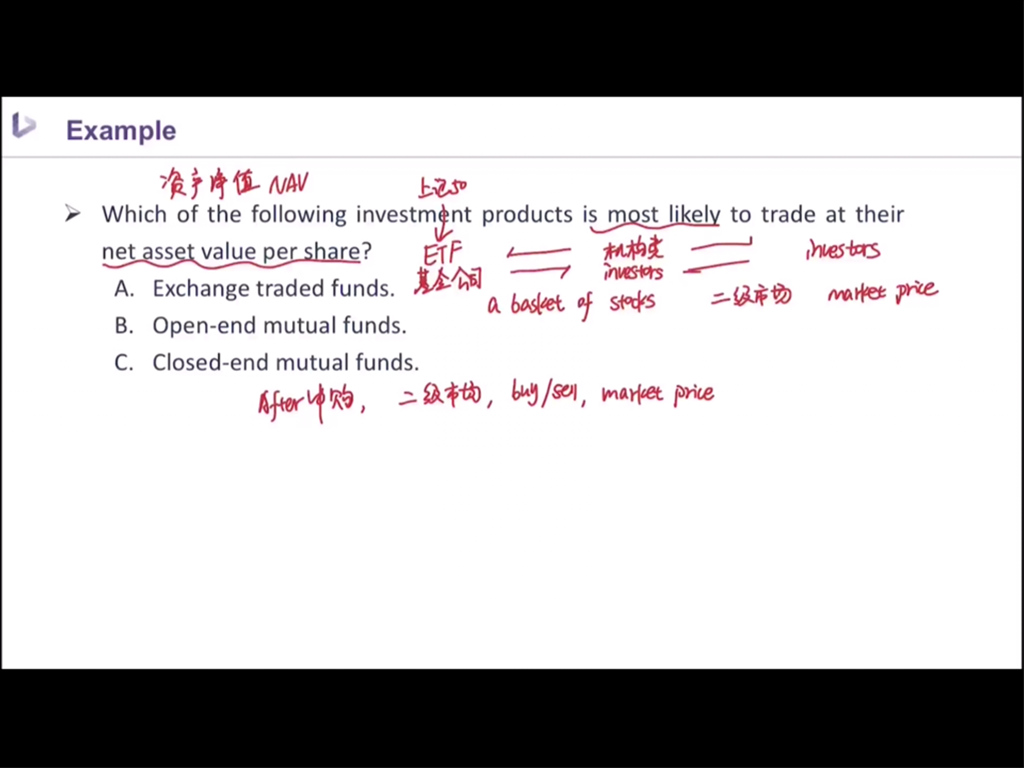 Example
资产净值 NAV
上证50
Which of the following investment products is most likely to trade at their
net asset value per share?
ETF
机构类
investors
investors
基金公司
A. Exchange traded funds.
a basket of stocks
二级市场
market price
B. Open-end mutual funds.
C. Closed-end mutual funds.
After申购, 二级市场, buy/sell, market price